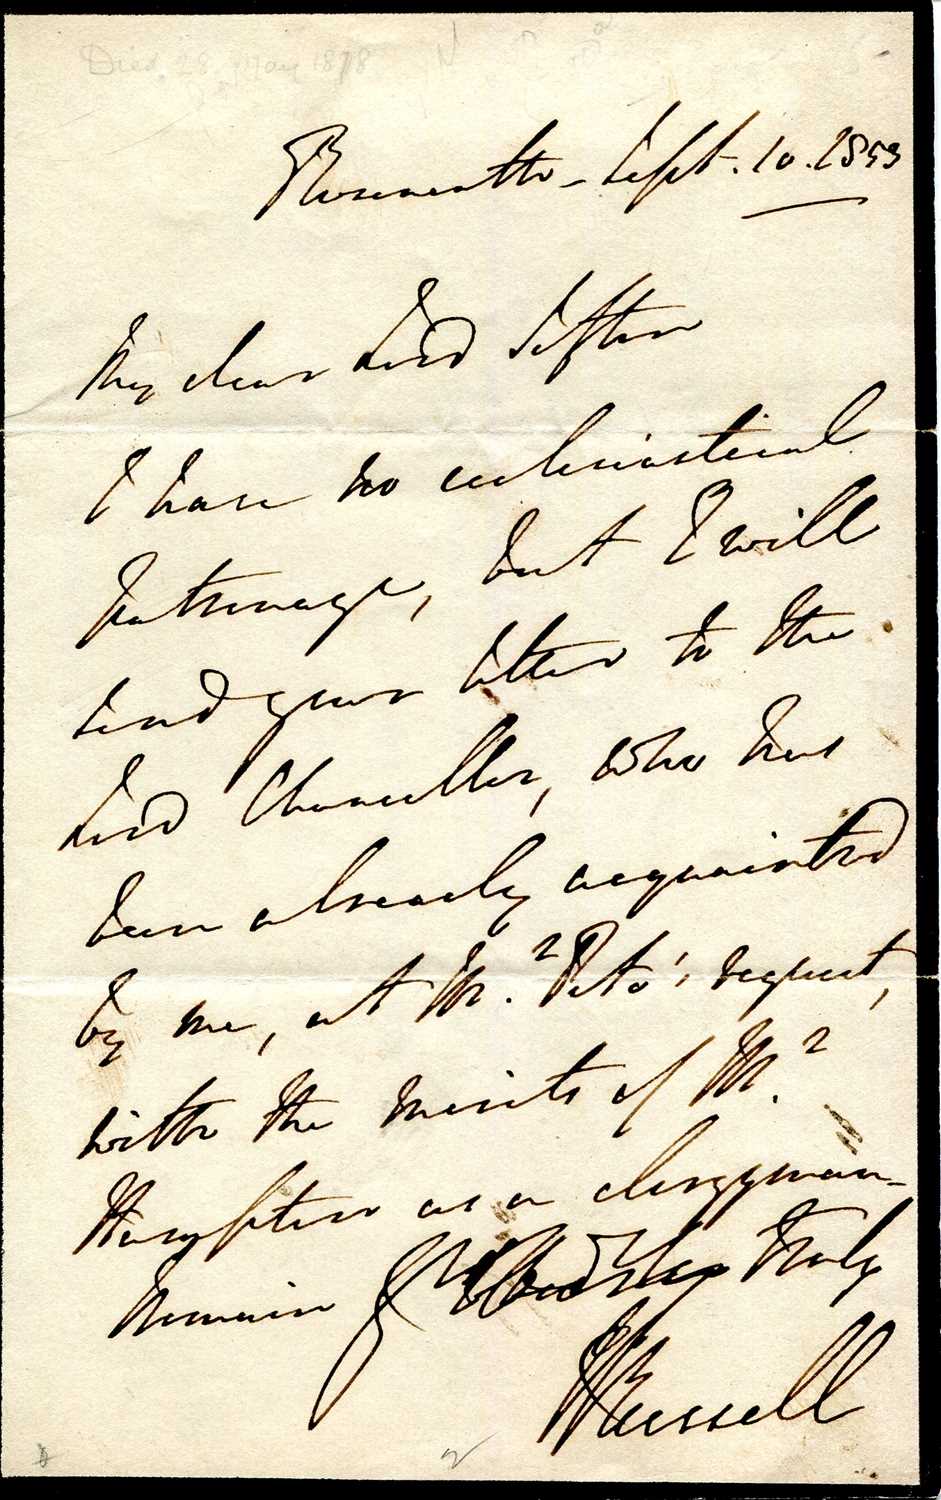 Died 28 May 1878
Roseneath - Sept. 10. 1853
My dear Lord Sefton
I have no ecclesiastical
patronage, but I will
send your letter to the
Lord Chancellor, who has
been already acquainted
by me, at Mr. Peto's request,
with the merits of Mr.
Hampton as a clergyman -
Remain Yrs truly
J Russell